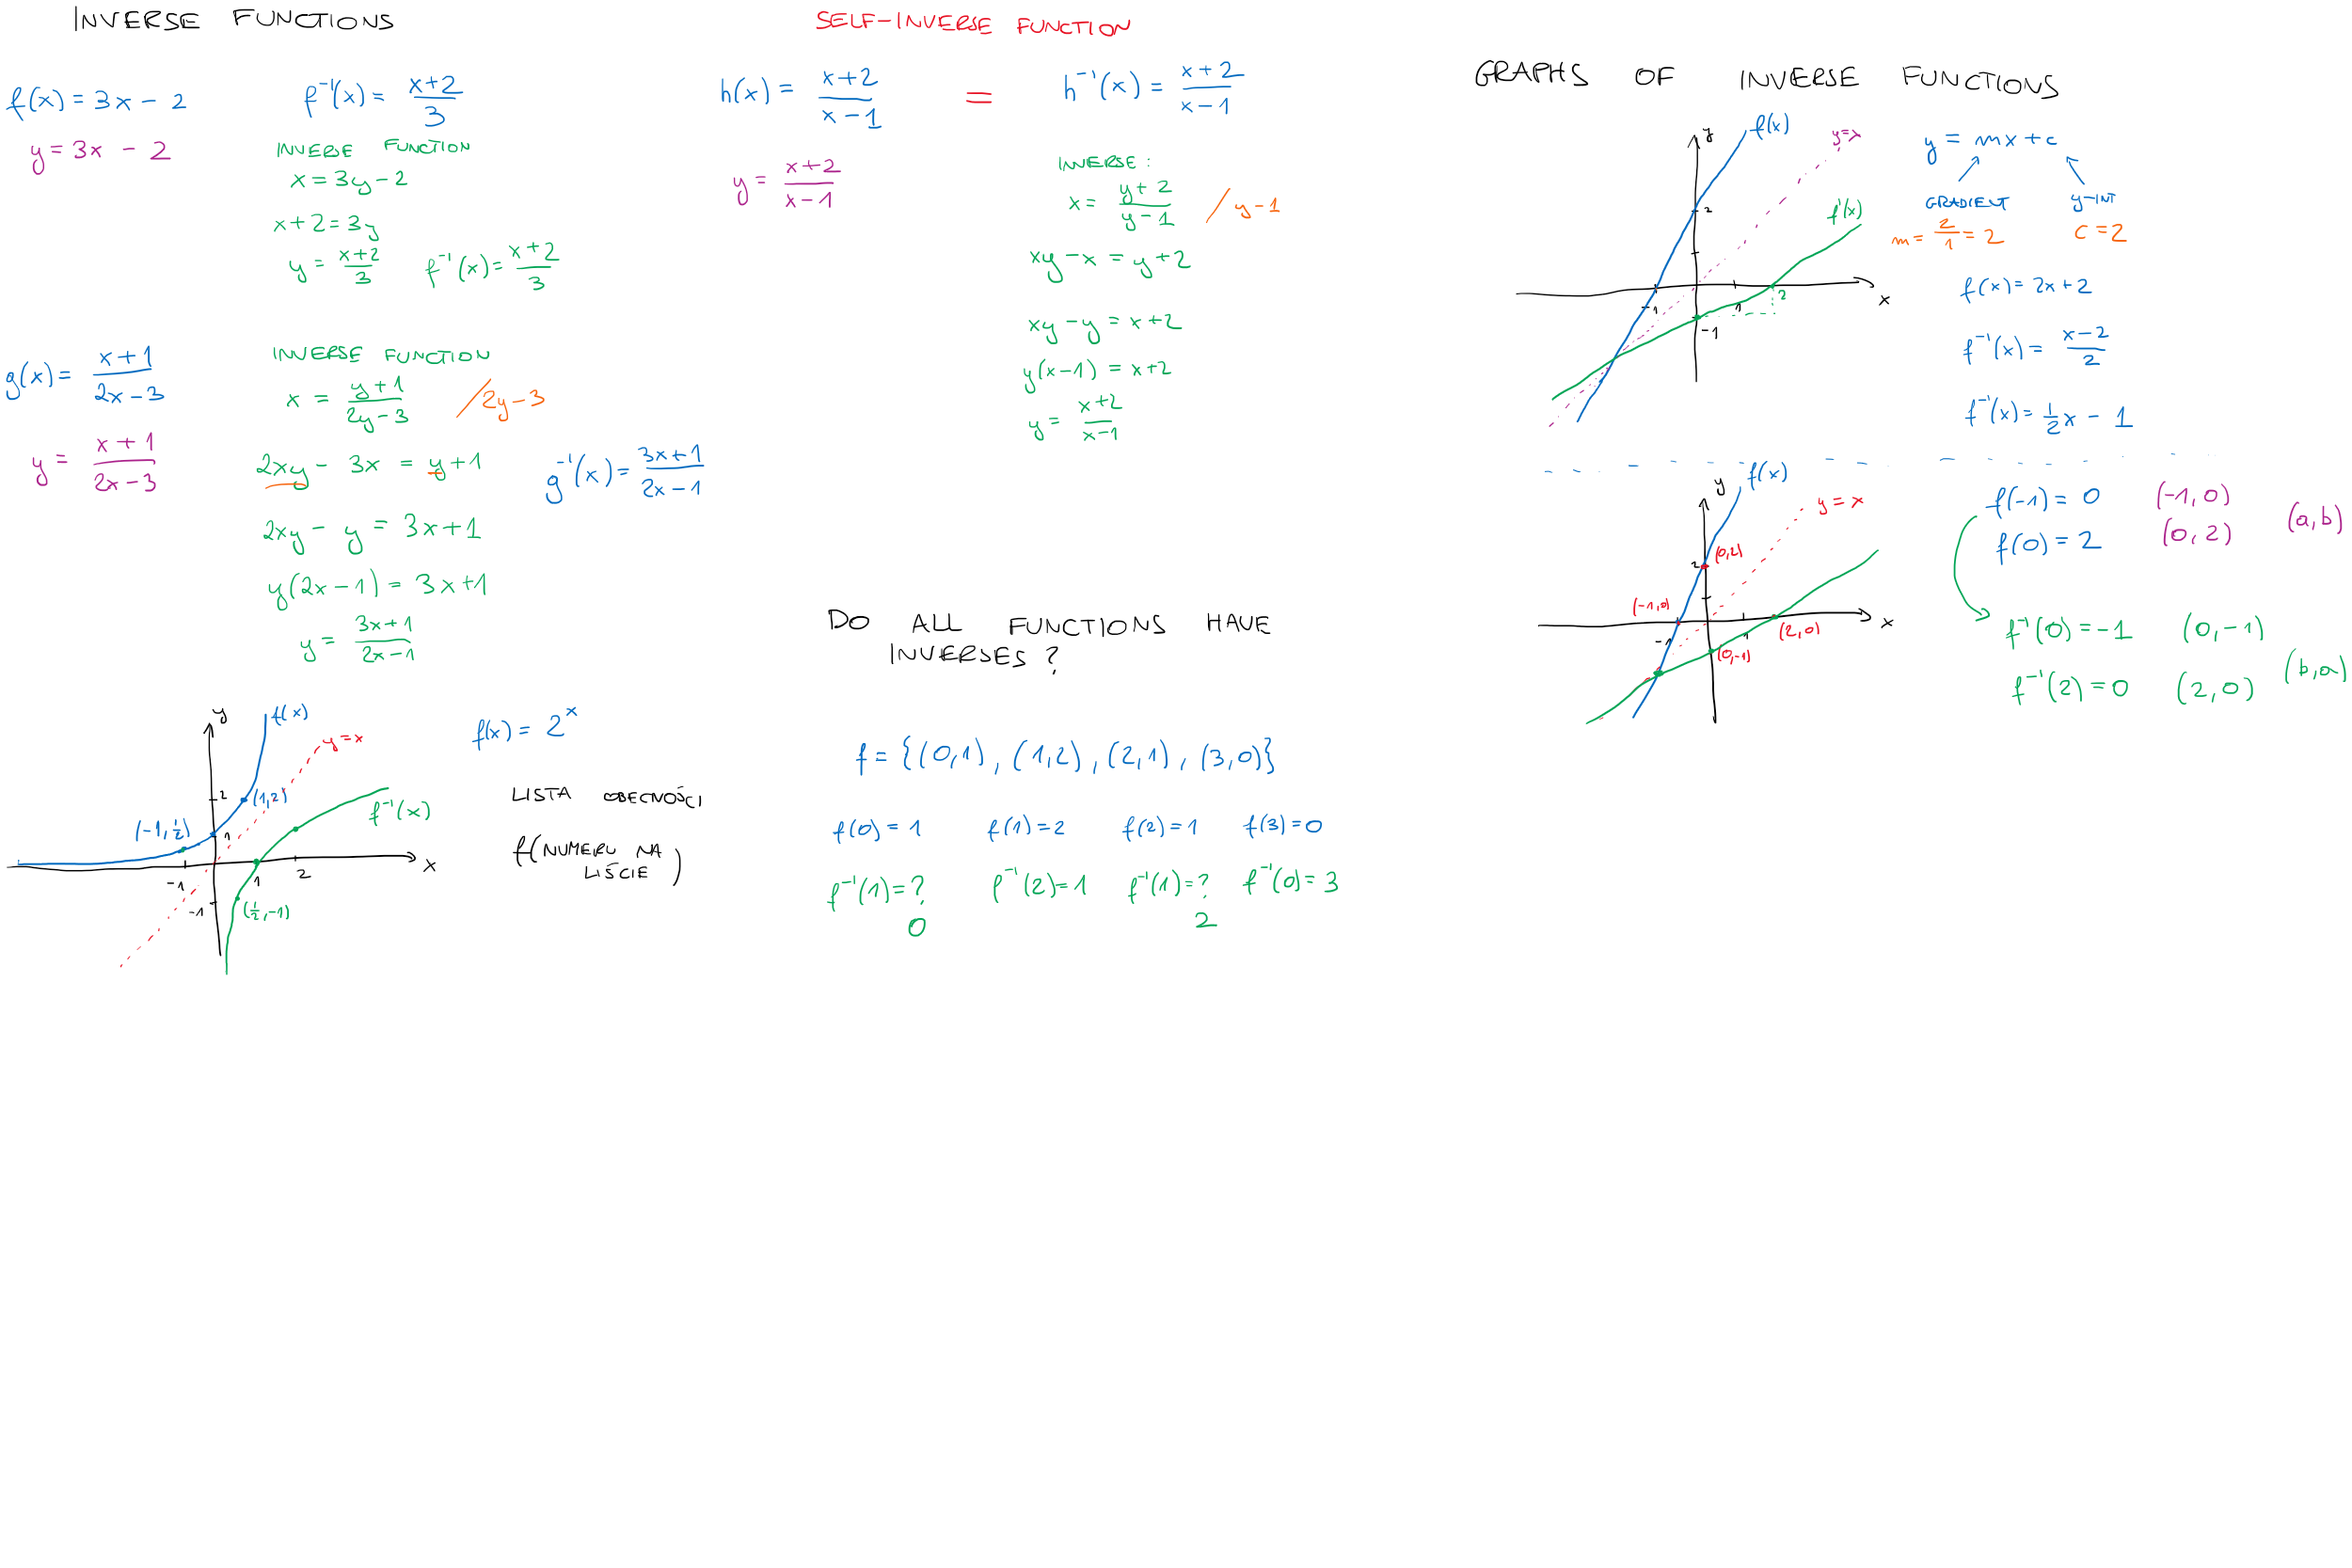 INVERSE FUNCTIONS
f(x) = 3x - 2
f⁻¹(x) = (x+2)/3
y = 3x - 2
INVERSE FUNCTION
x = 3y - 2
x + 2 = 3y
y = (x+2)/3
f⁻¹(x) = (x+2)/3
g(x) = (x+1)/(2x-3)
y = (x+1)/(2x-3)
INVERSE FUNCTION
x = (y+1)/(2y-3) /2y-3
2xy - 3x = y+1
2xy - y = 3x+1
y(2x-1) = 3x+1
y = (3x+1)/(2x-1)
g⁻¹(x) = (3x+1)/(2x-1)
y
f(x)
y=x
2
(1,2)
(-1,½)
1
f⁻¹(x)
x
-1
1
2
-1
(½,-1)
f(x) = 2ˣ
LISTA OBECNOŚCI
f(NUMERU NA
LIŚCIE)
SELF-INVERSE FUNCTION
h(x) = (x+2)/(x-1) = h⁻¹(x) = (x+2)/(x-1)
y = (x+2)/(x-1)
INVERSE:
x = (y+2)/(y-1) / y-1
xy - x = y+2
xy - y = x+2
y(x-1) = x+2
y = (x+2)/(x-1)
DO ALL FUNCTIONS HAVE
INVERSES?
f = {(0,1), (1,2), (2,1), (3,0)}
f(0) = 1 f(1) = 2 f(2) = 1 f(3) = 0
f⁻¹(1) = ? f⁻¹(2) = 1 f⁻¹(1) = ? f⁻¹(0) = 3
0 2
GRAPHS OF INVERSE FUNCTIONS
y
f(x)
y=x
2
f⁻¹(x)
-1
1
2
x
-1
y = mx+c
GRADIENT
y-INT
m = 2/1 = 2
c = 2
f(x) = 2x+2
f⁻¹(x) = (x-2)/2
f⁻¹(x) = ½x - 1
y
f(x)
y=x
2
(0,2)
(-1,0)
-1
1
x
(2,0)
(0,-1)
f(-1) = 0 (-1,0)
f(0) = 2 (0,2)
(a,b)
f⁻¹(0) = -1 (0,-1)
f⁻¹(2) = 0 (2,0)
(b,a)